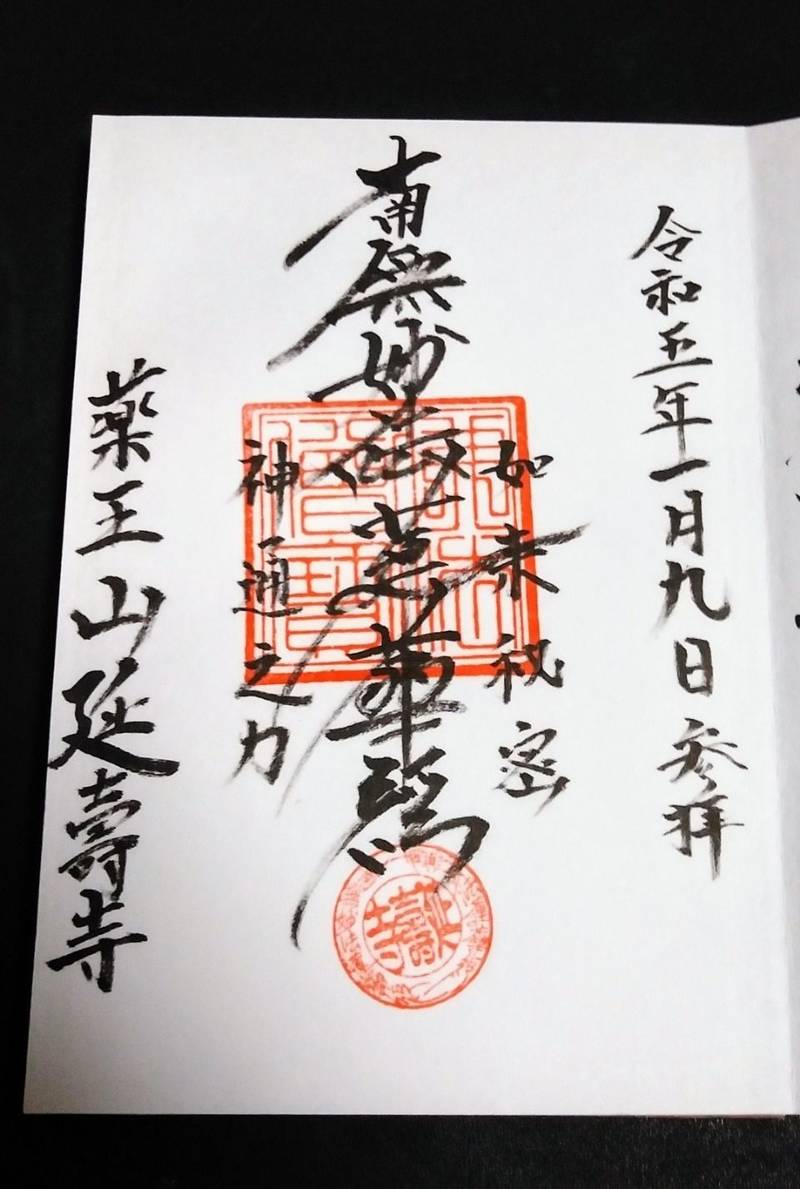 令和五年一月九日参拝
如来秘密
南無妙法蓮華経
神通之力
薬王山延壽寺
延壽寺